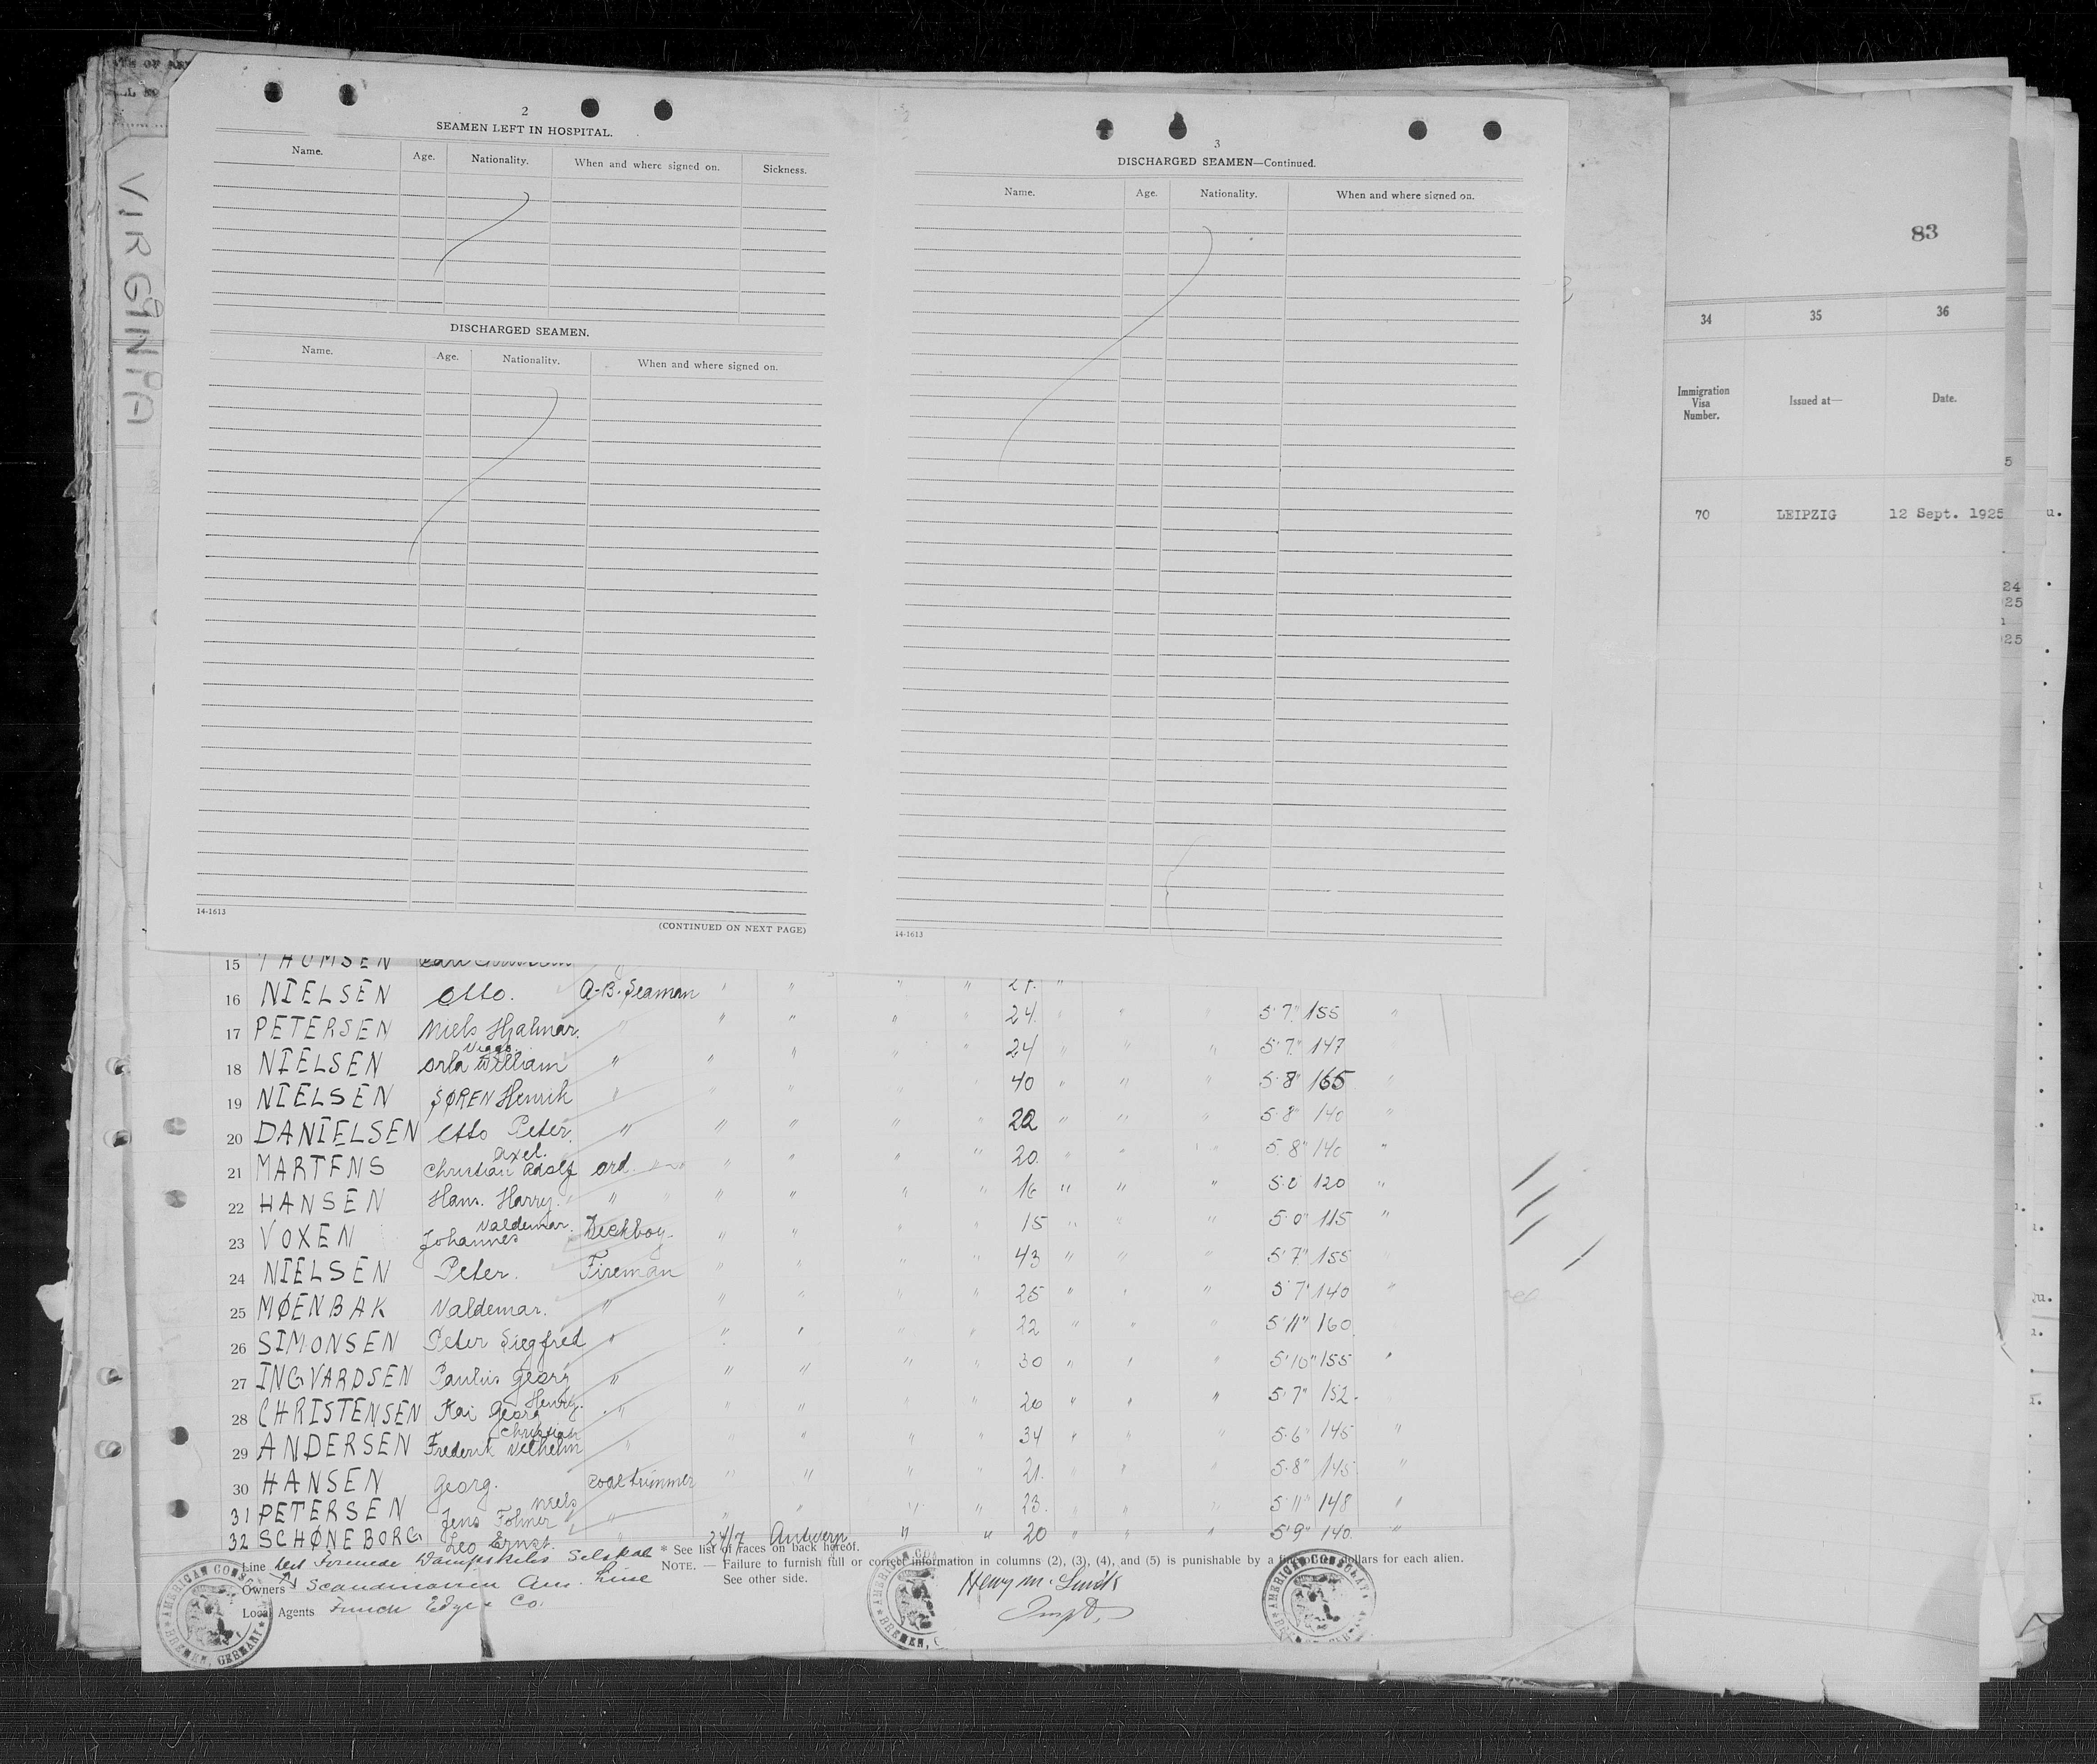 VIRGINIA
2
SEAMEN LEFT IN HOSPITAL.
Name. Age. Nationality. When and where signed on. Sickness.
DISCHARGED SEAMEN.
Name. Age. Nationality. When and where signed on.
14-1613
(CONTINUED ON NEXT PAGE)
3
DISCHARGED SEAMEN—Continued.
Name. Age. Nationality. When and where signed on.
14-1613
83
34 35 36
Immigration Visa Number. Issued at— Date.
70 LEIPZIG 12 Sept. 1925
15 THOMSEN
16 NIELSEN Otto. A.B. Seaman " " " "
17 PETERSEN Niels Hjalmar. " " " " " 24. " " 5'7" 155 "
18 NIELSEN Orla Viggo William " " " " " 24 " " " 5'7" 147
19 NIELSEN SØREN Henrik " 40 " " " 5'8" 165 "
20 DANIELSEN Otto Peter. " " " " " 22 " " " 5'8" 140 "
21 MARTENS Christian Axel Adolf ord. " " " " 20. " " " 5'8" 140 "
22 HANSEN Hans. Harry. " " " " " 16 " " " 5'0 120 "
23 VOXEN Johannes Valdemar. Deckboy. " " " " 15 " " " 5'0" 115 "
24 NIELSEN Peter. Fireman " " " " 43 " " " 5'7" 155
25 MØENBAK Valdemar. " " " " " 25 " " " 5'7" 140 "
26 SIMONSEN Peter Siegfred " " " " " 22 " " " 5'11" 160
27 INGVARDSEN Paulus Georg " " " " " 30 " " " 5'10" 155 "
28 CHRISTENSEN Kai Georg Henry. " " " " " 26 " " " 5'7" 152.
29 ANDERSEN Frederik Christian Vilhelm " " " " " 34 " " " 5'6" 145 "
30 HANSEN Georg. coaltrimmer " " " " 21. " " " 5'8" 145 "
31 PETERSEN Jens Niels Folmer " " " " " 23. " " " 5'11" 148 "
32 SCHØNEBORG Leo Ernst. " 24/7 Antwerp " " 20 " " " 5'9" 140. "
* See list of races on back hereof.
Line Det Forenede Dampskibs Selskab
NOTE. — Failure to furnish full or correct information in columns (2), (3), (4), and (5) is punishable by a fine of ten dollars for each alien.
See other side.
Owners Scandinavien Am. Line
Local Agents Funch Edye & Co.
Henry M. Smith
AMERICAN CONSULATE
BREMEN, GERMANY